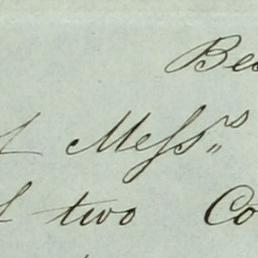 Be
Messrs
two Co